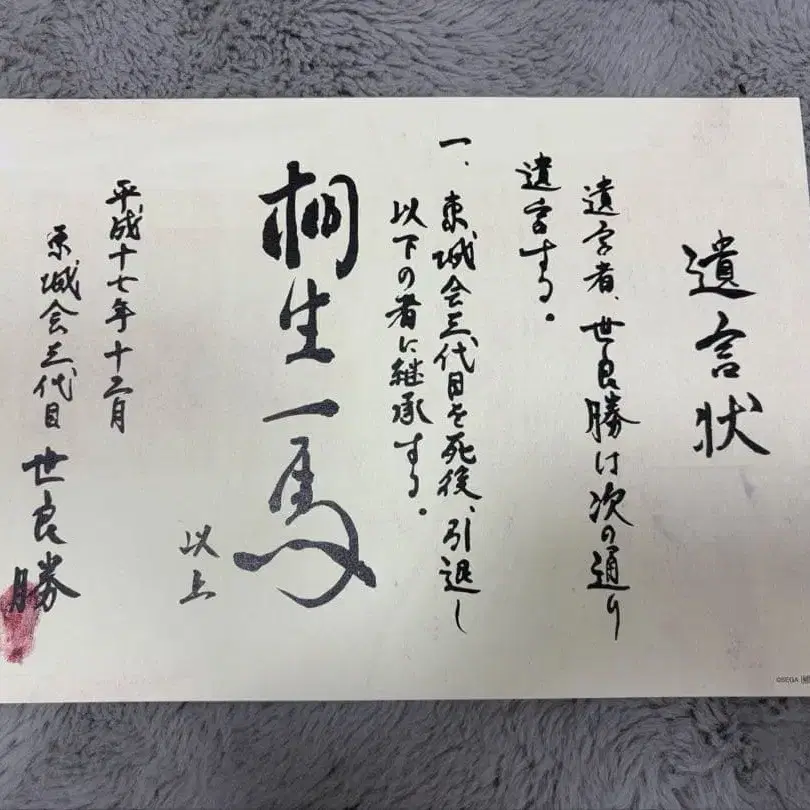 遺言状
遺言者、世良勝は次の通り
遺言する。
一、東城会三代目を死後、引退し
以下の者に継承する。
桐生一馬
以上
平成十七年十二月
東城会三代目 世良勝
©SEGA